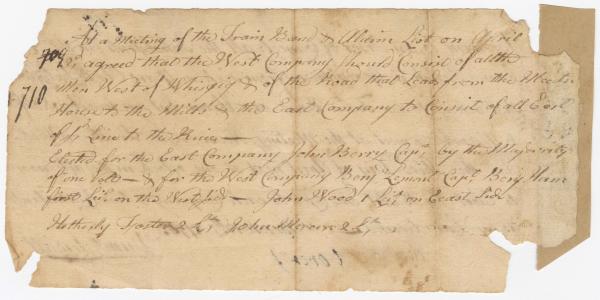 At a Meeting of the Train Band & Alarm List on April
709 agreed that the West Company should Consist of all the
Men West of Whisgig & of the Road that Leads from the Meetin
710
House to the Mills & the East Company to Consist of all East
of sd Line to the River —
Elected for the East Company John Berry Capt by the Majority
of one vote — & for the West Company Benj Lemont Capt Benj Ham
first Lit on the West side — John Wood 1 Lit on East Side
Foster 2 Lt John 2 Lt
(over)